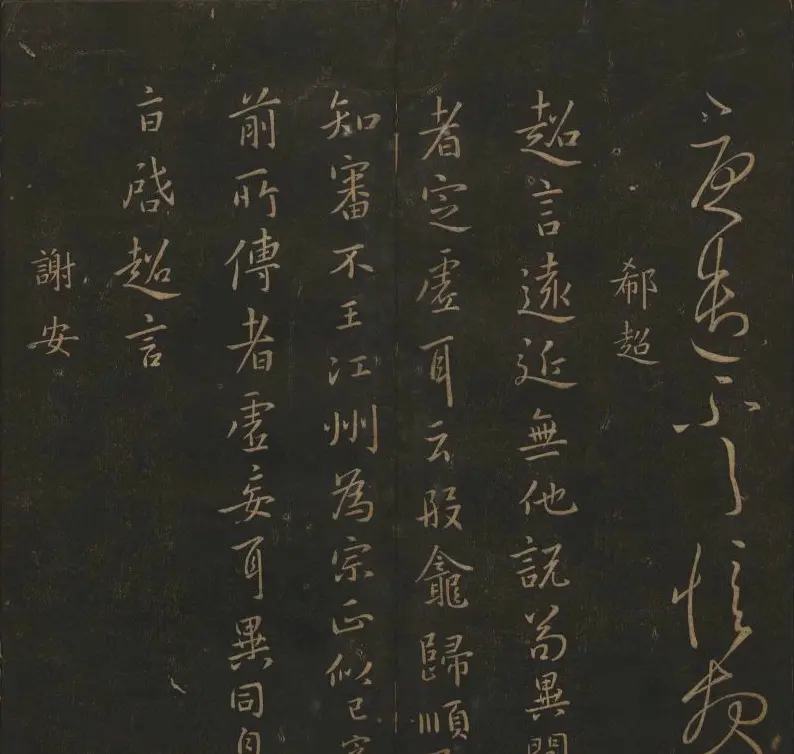 不
郗超
超言遠近無他説苟異聞
者定虛耳云段龕歸順
知審不王江州為宗正似已
前所傳者虛妄耳異同自
啓超言
謝安